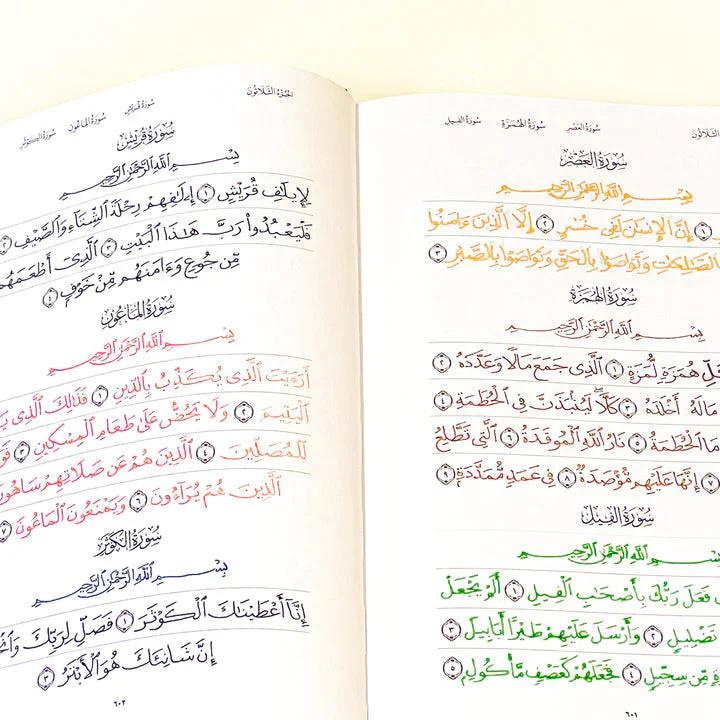 الثَّلَاثُونَ سُورَةُ العَصْرِ سُورَةُ الهُمَزَةِ سُورَةُ الفِيلِ
سُورَةُ العَصْرِ
بِسْمِ اللَّهِ الرَّحْمَٰنِ الرَّحِيمِ
١ إِنَّ الْإِنسَٰنَ لَفِى خُسْرٍ ٢ إِلَّا الَّذِينَ ءَامَنُوا
الصَّٰلِحَٰتِ وَتَوَاصَوْا بِالْحَقِّ وَتَوَاصَوْا بِالصَّبْرِ ٣
سُورَةُ الهُمَزَةِ
بِسْمِ اللَّهِ الرَّحْمَٰنِ الرَّحِيمِ
هُمَزَةٍ لُّمَزَةٍ ١ الَّذِى جَمَعَ مَالًا وَعَدَّدَهُۥ ٢
مَالَهُۥٓ أَخْلَدَهُۥ ٣ كَلَّا ۖ لَيُنۢبَذَنَّ فِى الْحُطَمَةِ ٤
مَا الْحُطَمَةُ ٥ نَارُ اللَّهِ الْمُوقَدَةُ ٦ الَّتِى تَطَّلِعُ
٧ إِنَّهَا عَلَيْهِم مُّؤْصَدَةٌ ٨ فِى عَمَدٍ مُّمَدَّدَةٍۭ ٩
سُورَةُ الفِيلِ
بِسْمِ اللَّهِ الرَّحْمَٰنِ الرَّحِيمِ
فَعَلَ رَبُّكَ بِأَصْحَٰبِ الْفِيلِ ١ أَلَمْ يَجْعَلْ
تَضْلِيلٍ ٢ وَأَرْسَلَ عَلَيْهِمْ طَيْرًا أَبَابِيلَ ٣
مِّن سِجِّيلٍ ٤ فَجَعَلَهُمْ كَعَصْفٍ مَّأْكُولٍۭ ٥
٦٠١
الجُزْءُ الثَّلَاثُونَ سُورَةُ قُرَيْشٍ سُورَةُ المَاعُونِ سُورَةُ الكَوْثَرِ
سُورَةُ قُرَيْشٍ
بِسْمِ اللَّهِ الرَّحْمَٰنِ الرَّحِيمِ
لِإِيلَٰفِ قُرَيْشٍ ١ إِۦلَٰفِهِمْ رِحْلَةَ الشِّتَآءِ وَالصَّيْفِ ٢
فَلْيَعْبُدُوا رَبَّ هَٰذَا الْبَيْتِ ٣ الَّذِىٓ أَطْعَمَهُم
مِّن جُوعٍ وَءَامَنَهُم مِّنْ خَوْفٍۭ ٤
سُورَةُ المَاعُونِ
بِسْمِ اللَّهِ الرَّحْمَٰنِ الرَّحِيمِ
أَرَءَيْتَ الَّذِى يُكَذِّبُ بِالدِّينِ ١ فَذَٰلِكَ الَّذِى
الْيَتِيمَ ٢ وَلَا يَحُضُّ عَلَىٰ طَعَامِ الْمِسْكِينِ ٣
لِّلْمُصَلِّينَ ٤ الَّذِينَ هُمْ عَن صَلَاتِهِمْ سَاهُونَ
الَّذِينَ هُمْ يُرَآءُونَ ٦ وَيَمْنَعُونَ الْمَاعُونَ ٧
سُورَةُ الكَوْثَرِ
بِسْمِ اللَّهِ الرَّحْمَٰنِ الرَّحِيمِ
إِنَّآ أَعْطَيْنَٰكَ الْكَوْثَرَ ١ فَصَلِّ لِرَبِّكَ
إِنَّ شَانِئَكَ هُوَ الْأَبْتَرُ ٣
٦٠٢